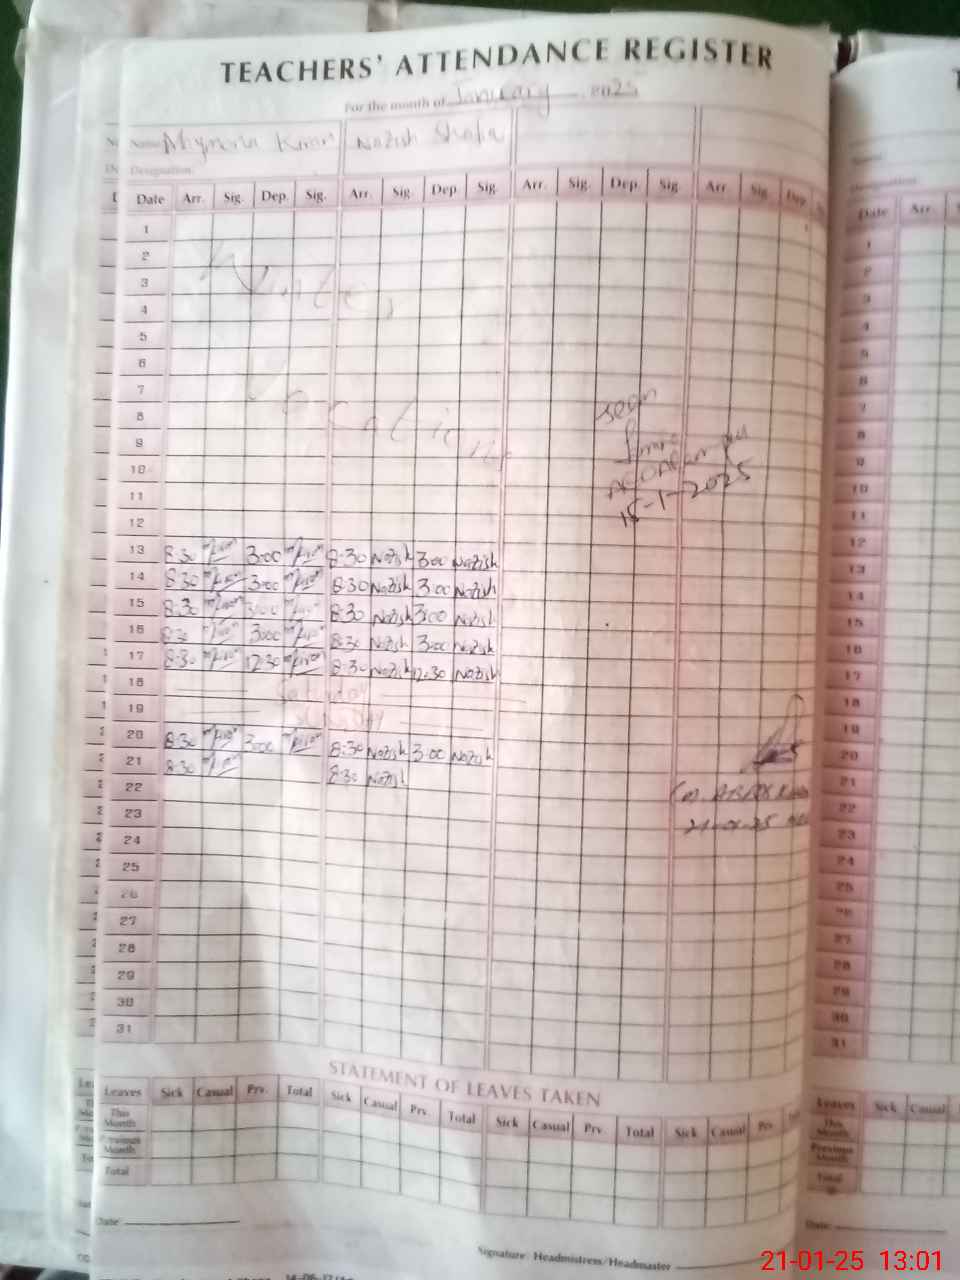 TEACHERS' ATTENDANCE REGISTER
For the month of January 2025
Name Kiran Nazish Shafa
Designation:
Date Arr. Sig. Dep. Sig. Arr. Sig. Dep. Sig. Arr. Sig. Dep. Sig. Arr. Sig. Dep.
1
2
Winter
3
4
5
6
7
Vacations
8
seen
9
10
11
15-1-2025
12
13 8:30 3:00 8:30 Nazish 3:00 Nazish
14 8:30 3:00 8:30 Nazish 3:00 Nazish
15 8:30 3:00 8:30 Nazish 3:00 Nazish
16 8:30 3:00 8:30 Nazish 3:00 Nazish
17 8:30 12:30 8:30 Nazish 12:30 Nazish
18 Saturday
19 SUNDAY
20 8:30 3:00 8:30 Nazish 3:00 Nazish
21 8:30 8:30 Nazish
22
23
24
25
26
27
28
29
30
31
STATEMENT OF LEAVES TAKEN
Leaves Sick Casual Prv. Total Sick Casual Prv. Total Sick Casual Prv. Total Sick Casual Prv.
This Month
Previous Month
Total
Date
Signature: Headmistress/Headmaster
Date
Arr.
1
2
3
4
5
6
7
8
9
10
11
12
13
14
15
16
17
18
19
20
21
22
23
24
25
26
27
28
29
30
31
Leaves Sick Casual
This Month
Previous Month
Total
Date:
21-01-25 13:01